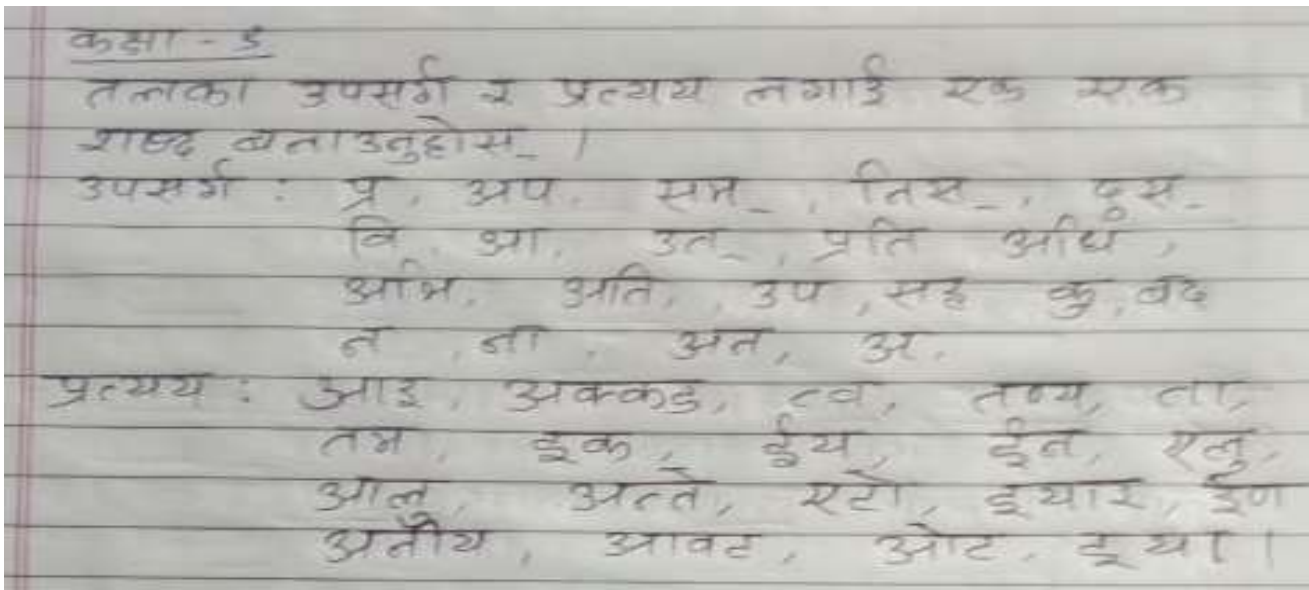 कक्षा - ५
तलका उपसर्ग र प्रत्यय लगाई एक एक
शब्द बनाउनुहोस् ।
उपसर्ग : प्र, अप, सम्, निस्, दुस्
वि, आ, उत्, प्रति अधि,
अभि, अति, उप, सह कु, बद
न, ना, अन, अ,
प्रत्यय : आइ, अक्कड, त्व, तव्य, ता,
तम, इक, ईय, ईन, एलु,
आलु, अन्ते, एटो, इयार, ईण
अनीय, आवट, ओट, इया ।